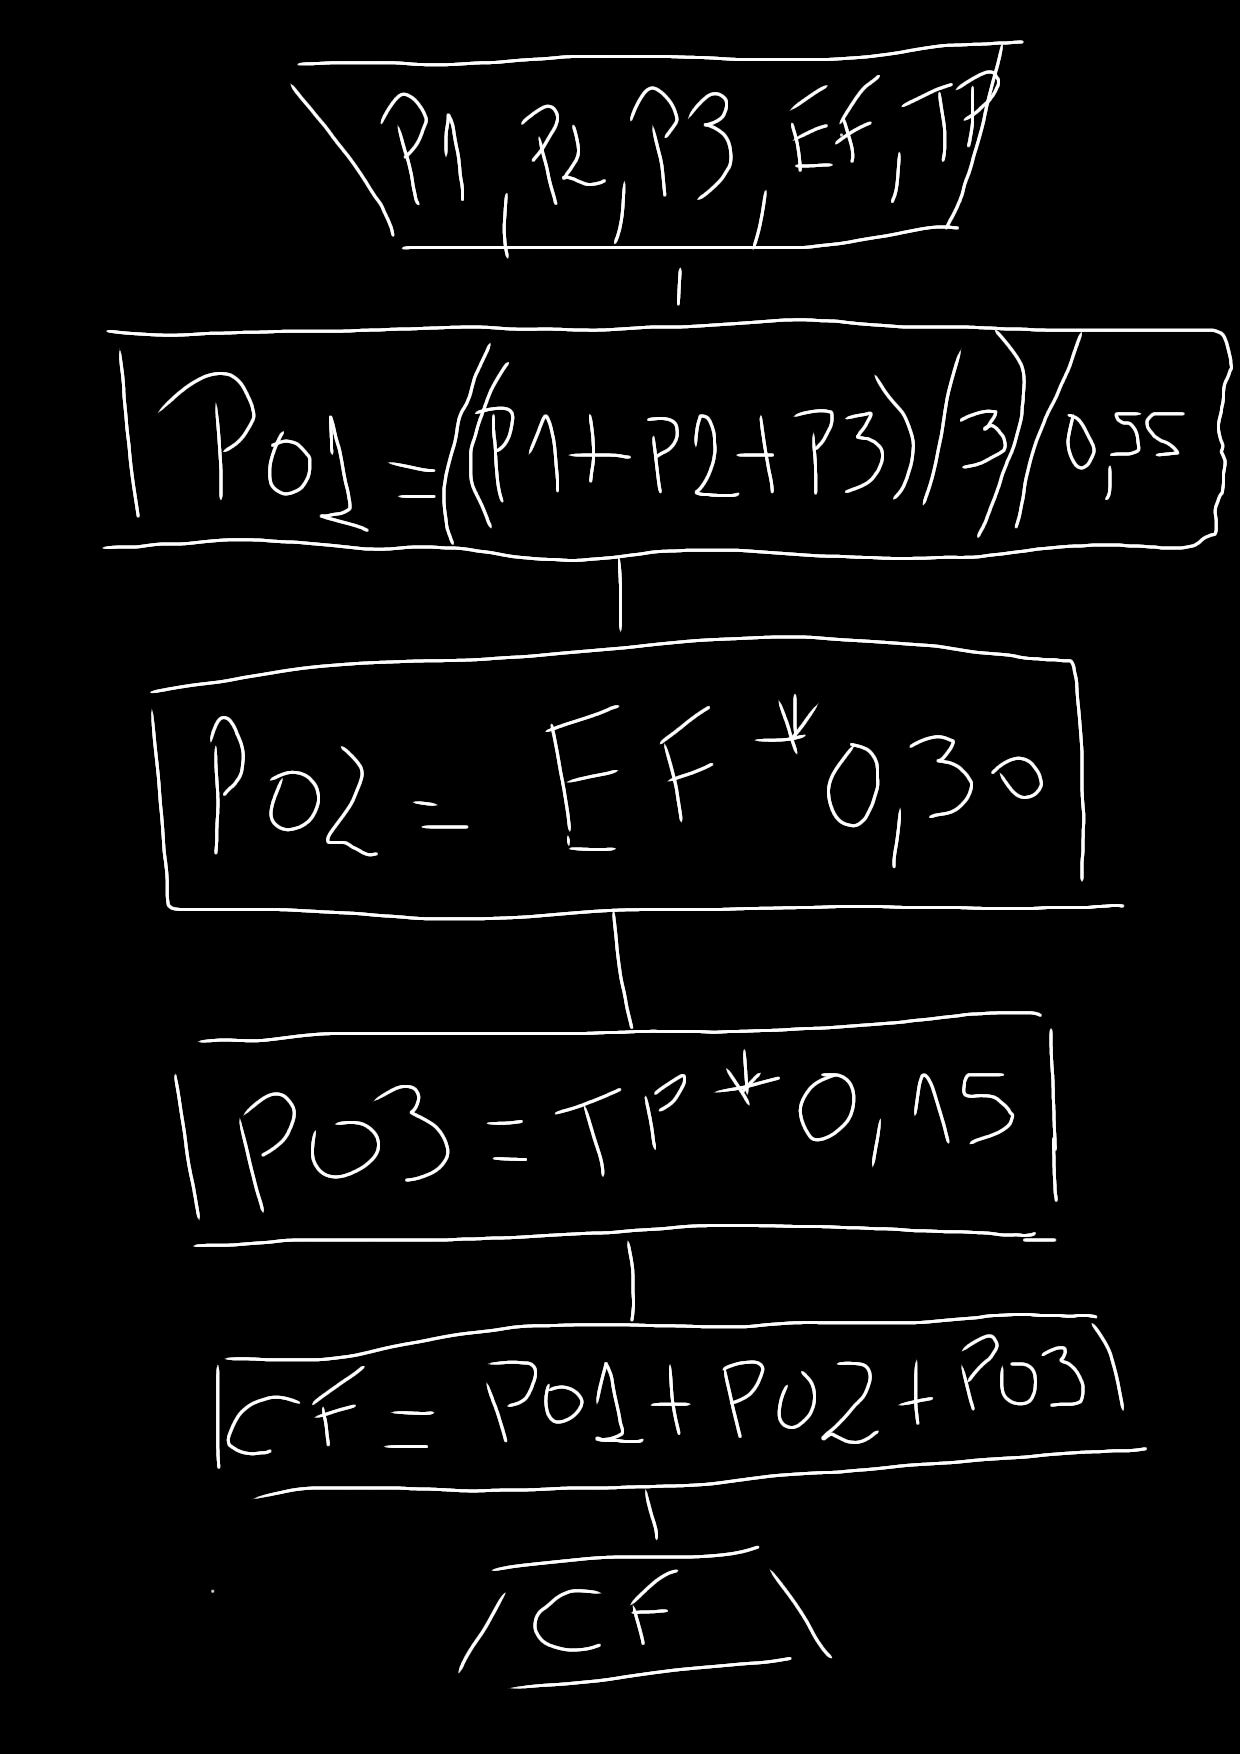 P1, P2, P3, EF, TP
PO1 = ((P1+P2+P3)/3)/0,55
PO2 = EF * 0,30
PO3 = TP * 0,15
CF = PO1 + PO2 + PO3
CF